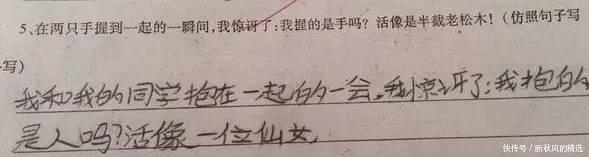 5、在两只手握到一起的一瞬间,我惊讶了:我握的是手吗? 活像是半截老松木! (仿照句子写
写)
我和我的同学抱在一起的一会,我惊讶了:我抱的
是人吗?活像一位仙女,
快传号 / 断秋风的精选